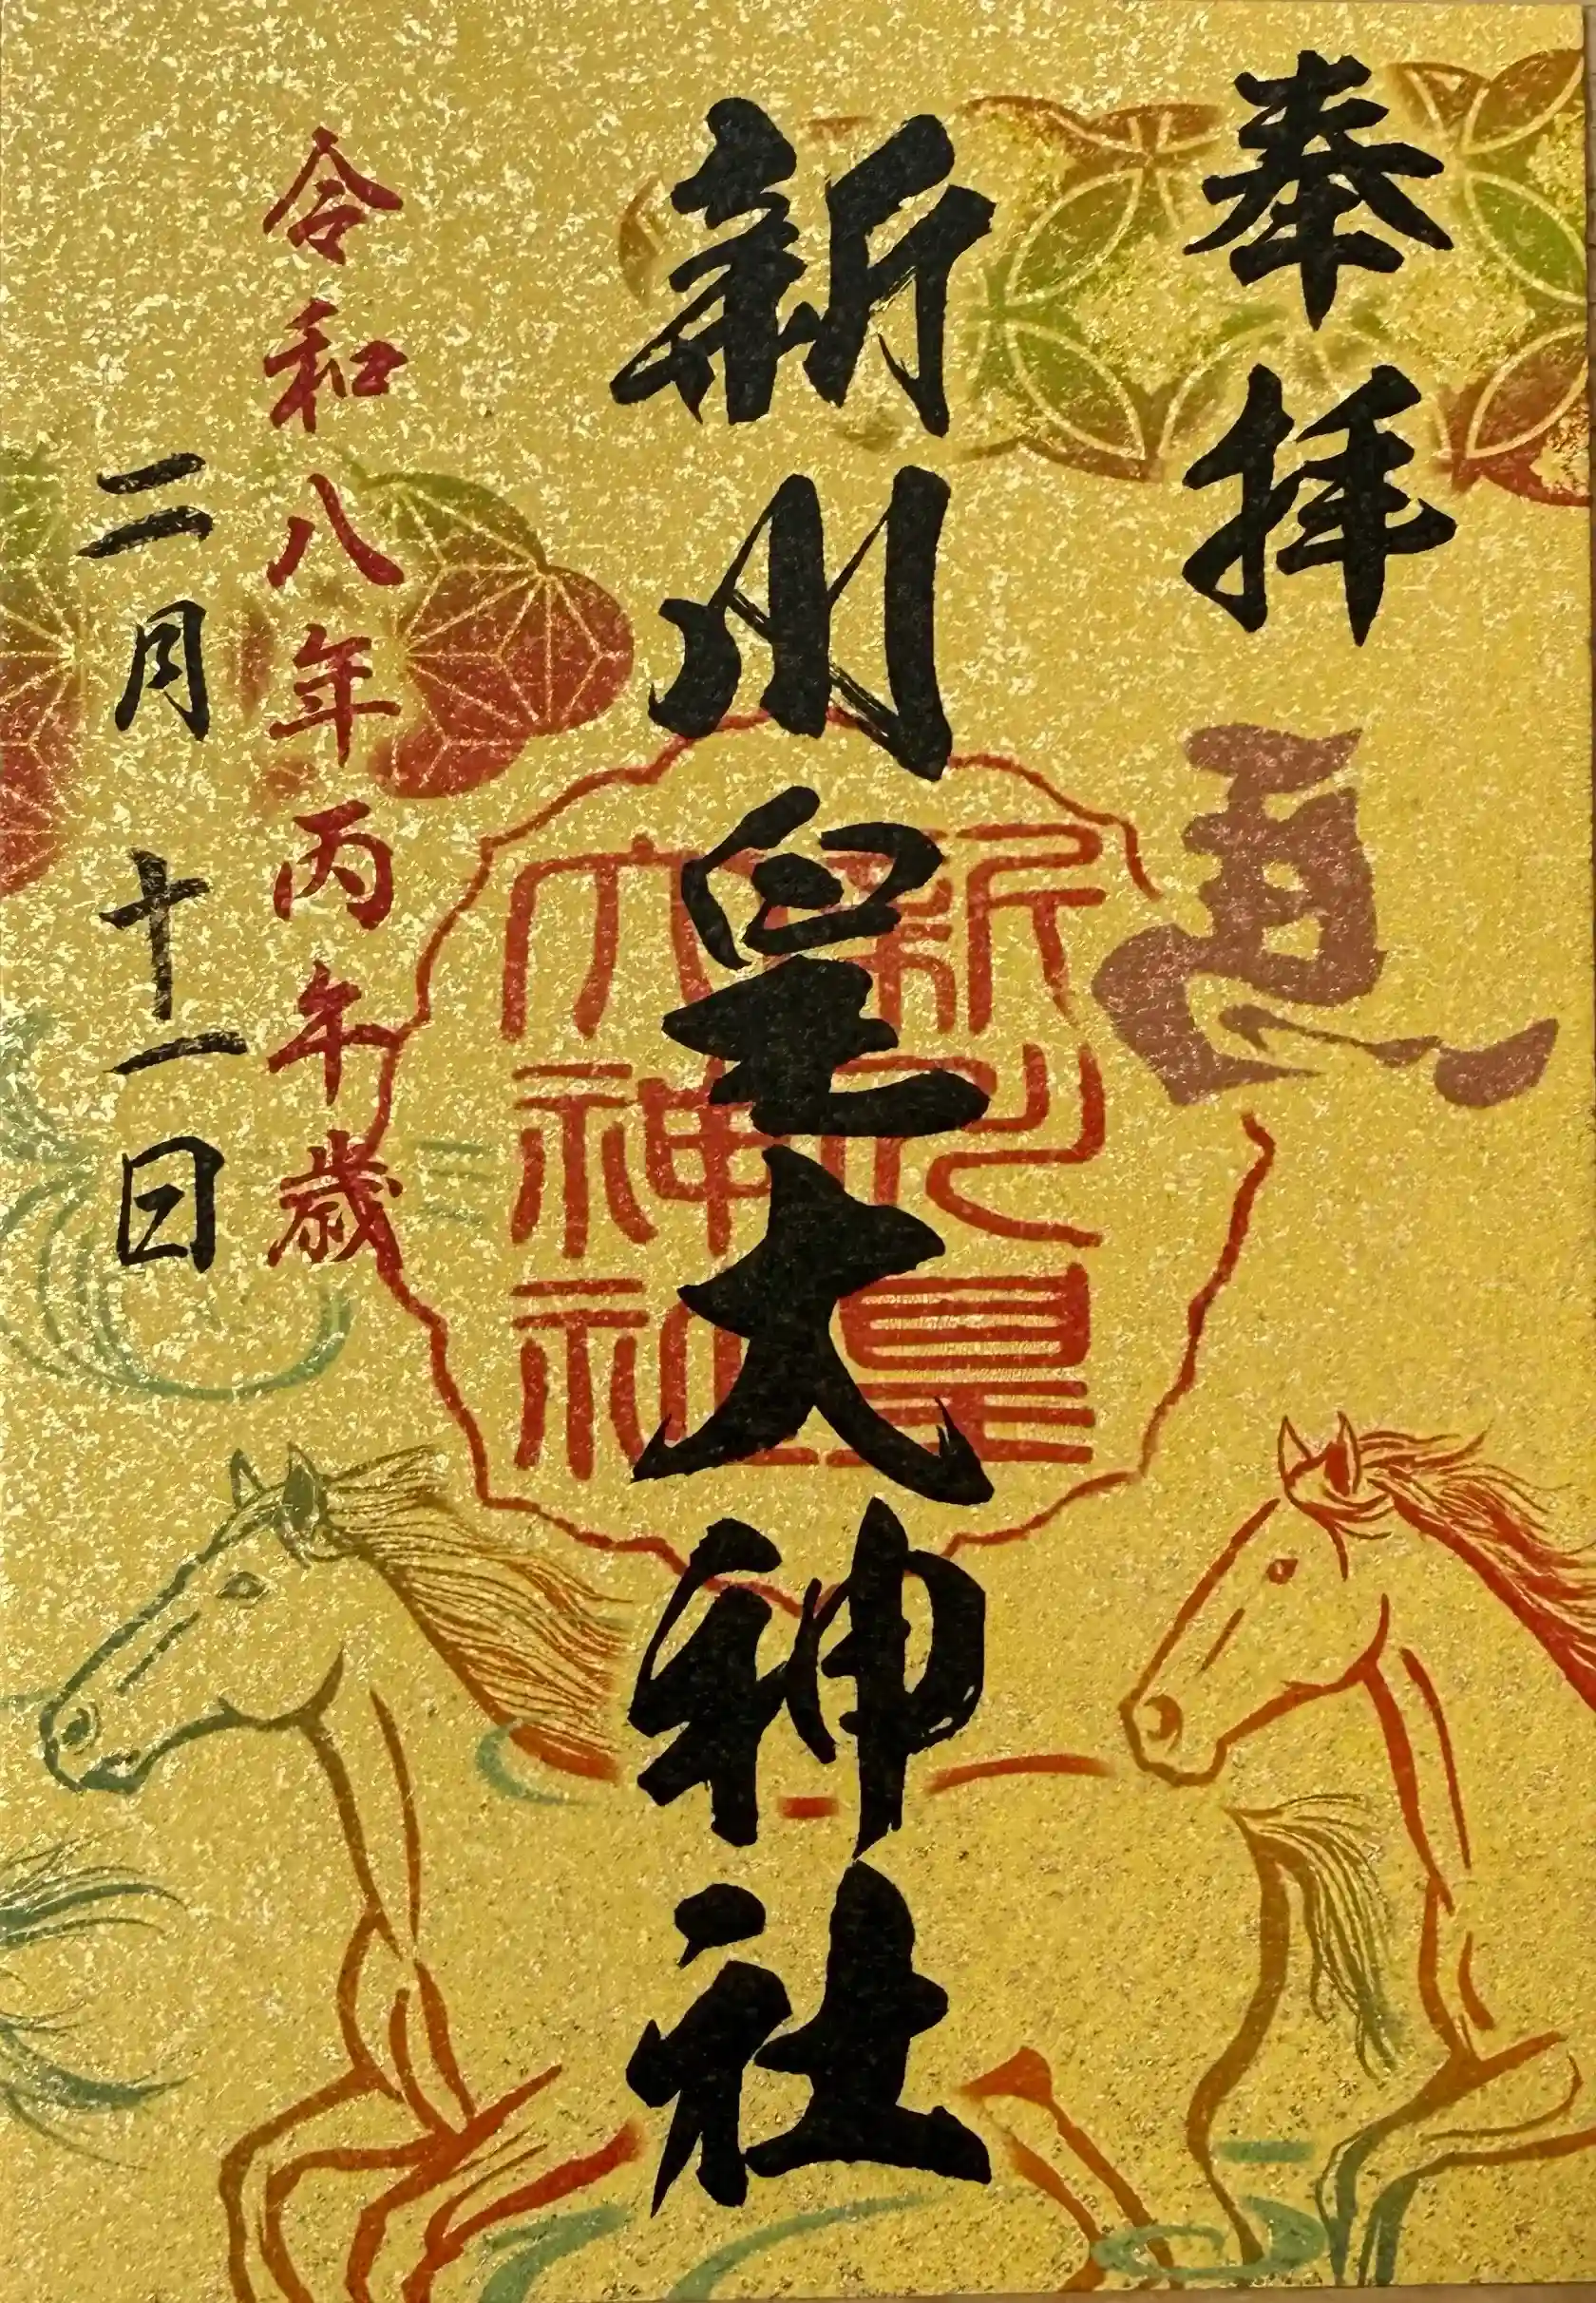 奉拝
新川皇大神社
新川皇
大神社
令和八年丙午歳
二月十一日